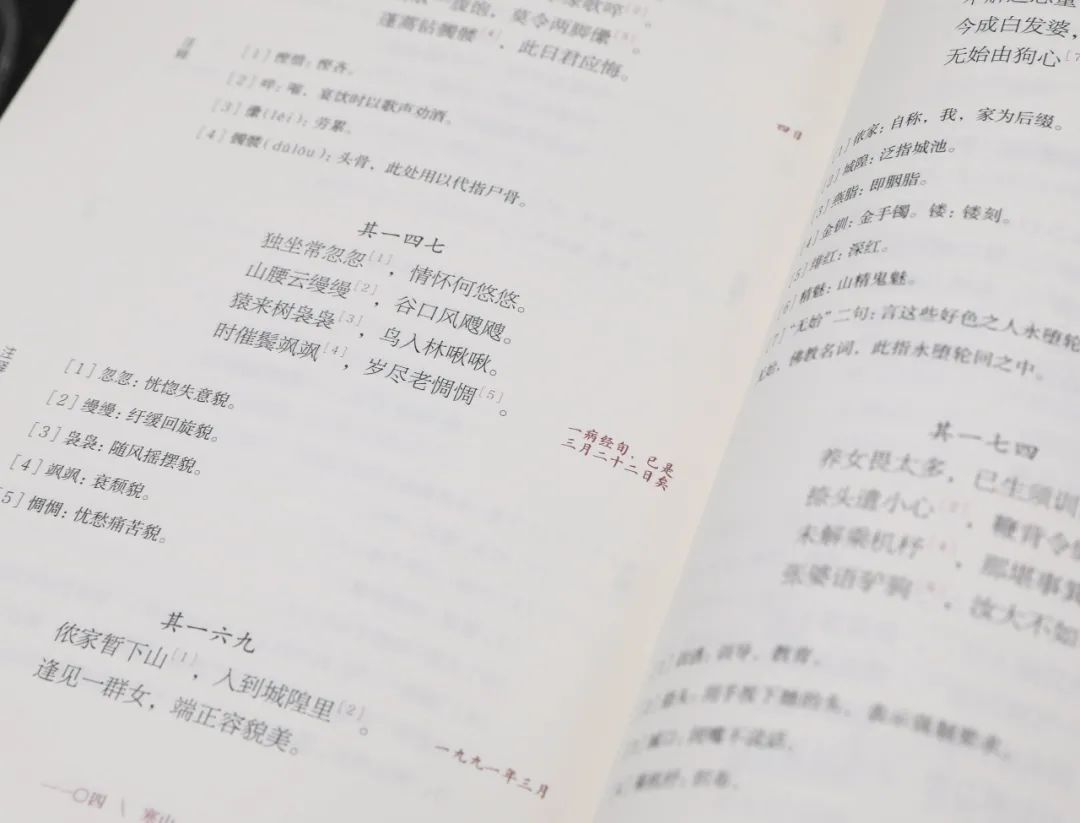 一饱，莫令两脚儽[3]。
蓬蒿钻髑髅[4]，此日君应悔。
注释
[1] 悭惜：悭吝。
[3] 儽(léi)：劳累。
[4] 髑髅(dúlóu)：头骨，此处用以代指尸骨。
四日
其一四七
独坐常忽忽[1]，情怀何悠悠。
山腰云缦缦[2]，谷口风飕飕。
猿来树袅袅[3]，鸟入林啾啾。
时催鬓飒飒[4]，岁尽老惆惆[5]。
注释
[1] 忽忽：恍惚失意貌。
[2] 缦缦：纡缓回旋貌。
[3] 袅袅：随风摇摆貌。
[4] 飒飒：衰颓貌。
[5] 惆惆：忧愁痛苦貌。
一病经旬，已是
三月二十二日矣
其一六九
侬家暂下山[1]，入到城隍里[2]。
逢见一群女，端正容貌美。
一九九一年三月
一一〇四 \ 寒山
今成白发婆，
无始由狗心[7
[1] 侬家：自称，我，家为后缀。
[2] 城隍：泛指城池。
[3] 燕脂：即胭脂。
[4] 金钏：金手镯。镂：镂刻。
[5] 绯红：深红。
[6] 精魅：山精鬼魅。
[7] “无始”二句：言这些好色之人永堕轮
无始，佛教名词，此指永堕轮回之中。
其一七四
养女畏太多，已生须训
捺头遣小心[2]，鞭背令
未解乘机杼[4]，那堪事箕
张婆语驴驹[5]，汝大不如